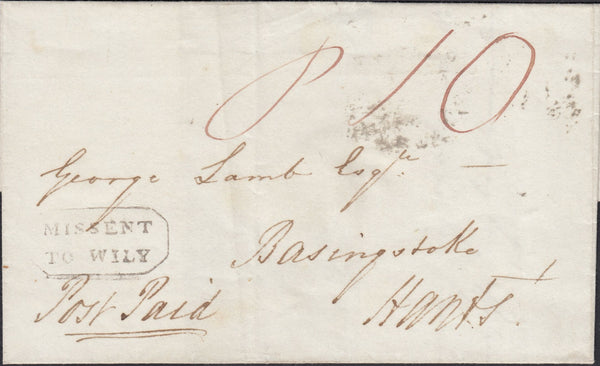 P 10
George Lamb Esqre
MISSENT
TO WILY
Basingstoke
Post Paid
Hants